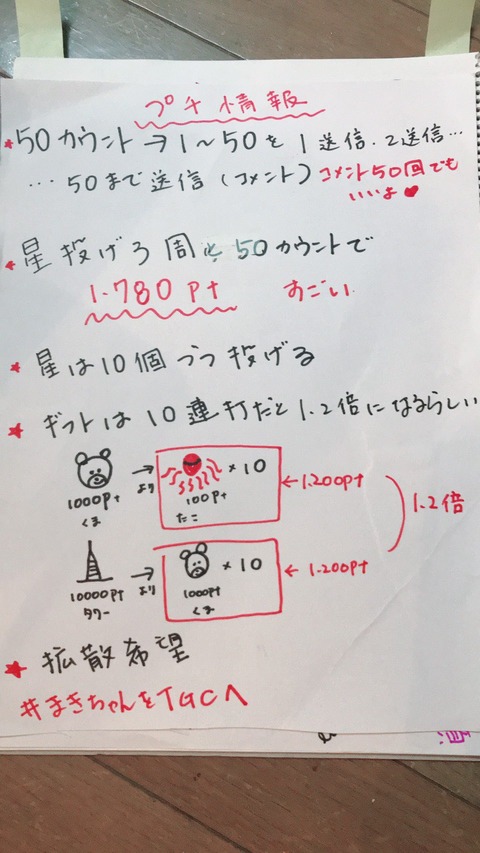 プチ情報
★50カウント→1〜50を1送信.2送信…
…50まで送信(コメント)コメント50回でも
いいよ♥
★星投げ3周と50カウントで
1.780Pt すごい
★星は10個づつ投げる
★ギフトは10連打だと1.2倍になるらしい
1000Pt
くま
→
より
×10
100Pt
たこ
←1.200Pt
1.2倍
10000Pt
タワー
→
より
×10
1000Pt
くま
←1.200Pt
★拡散希望
#まきちゃんをTGCへ